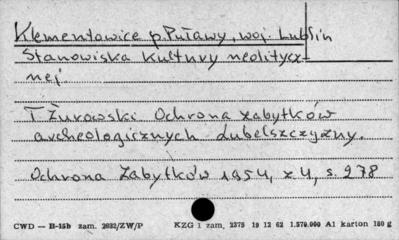 Klementowice p. Puławy, woj. Lublin
Stanowiska kultury neolitycz-
nej
T Żurowski Ochrona zabytków
archeologicznych Lubelszczyzny.
Ochrona Zabytków 1954, z 4, s. 278
CWD — B-15b zam. 2032/ZW/P KZG 1 zam, 2375 19 12 62 1.570.000 A1 karton 180 g